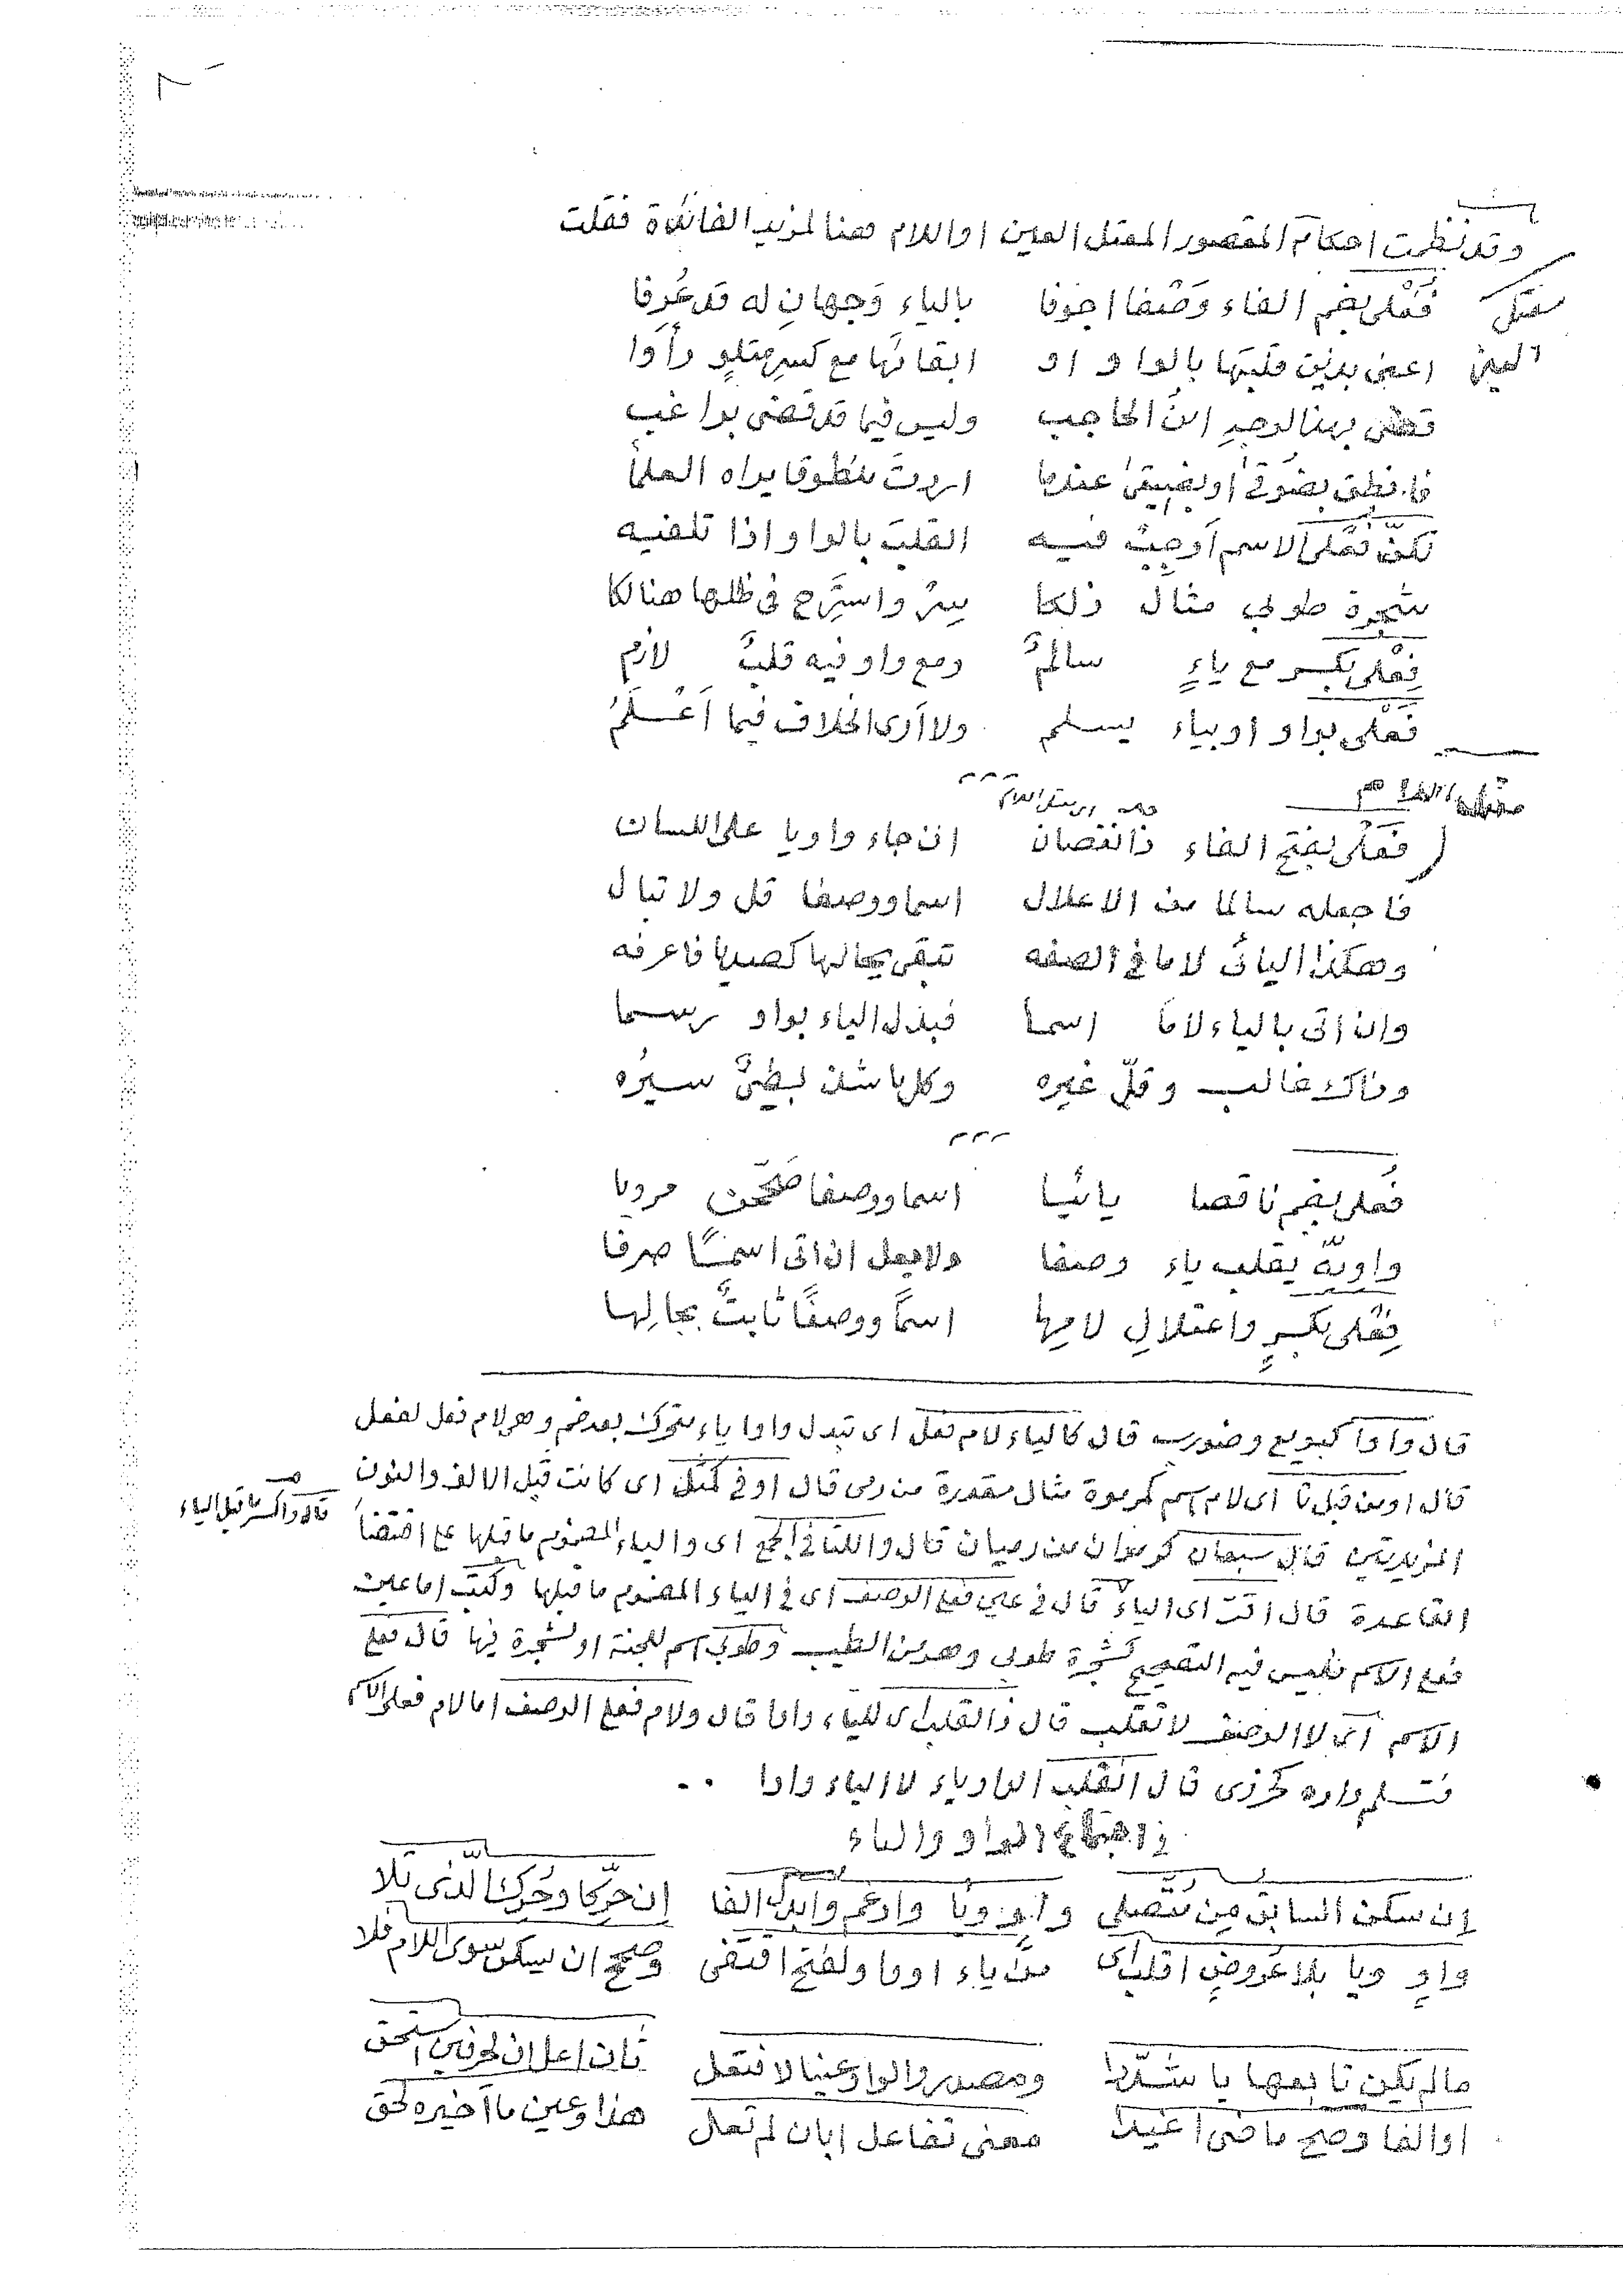 وقد نظمت احكام المقصور المعتل العين او اللام هنا لمزيد الفائدة فقلت
معتل العين
فُعْلى بضم الفاء وَصْفا اجوفا بالياء وَجهانِ له قد عُرِفا
اعنى بذين قلبَها بالواو او ابقائَها مع كسرِ متلوٍ رأَوا
قضى بهذا الوجهِ ابنُ الحاجب وليس فيما قد قضى براغب
فانطق بضُوقىٰ او بضيقىٰ عندما اردتَ منطوقا يراه العلما
لكنّ فُعْلى الاسم أوجِبْ فيه القلبَ بالواو اذا تلفيه
شجرة طوبى مثالُ ذلكا سِرْ واستَرِح فى ظلها هنالكا
فِعْلى بكسر مع ياءٍ سالمٌ ومع واو فيه قلبٌ لازم
فَعْلى بواو او بياء يسلم ولا أرى الخلاف فيما اَعْلَمُ
معتل اللام
فَعْلى بفتح الفاء ذا نقصان ان جاء واويا على اللسان
فاجعله سالما من الاعلال اسما ووصفا قل ولا تبال
وهكذا اليائى لاما فى الصفه تبقى بحالها كصديا فاعرفه
وان اتى بالياء لاما اسما فبذل الياء بواو رسما
وذاك غالب وقلّ غيره وكل ما شذ بطئٌ سيرُه
فُعلى بضم ناقصا يائيا اسما ووصفا صَحّحن مرويا
واويّه يقلب ياء وصفا ولا يعل ان اتى اسمًا صرفا
فِعْلى بكسرٍ واعتلالِ لامِها اسمًا ووصفًا ثابتٌ بحالِها
قال واوا كبويع وضورب قال كالياء لام فعل اى تبدل واوا ياء متحرك بعد ضم وهو لام فعل لفعل
قال او من قبل تا اى لام اسم كرموة مثال مقدرة من رمى قال او فى كمثل اى كانت قبل الالف والنون
قال واكسر ما قبل الياء
المزيدتين قال سبعان كرموان من رميان قال واللتا فى الجمع اى والياء المضموم ما قبلها مع اقتضا
القاعدة قال اقت اى الياء قال فى عين فعلى الوصف اى فى الياء المضموم ما قبلها وكتب اما عين
فعلى الاسم فليس فيه التصحيح كشجرة طوبى وهو من الطيب وطوبى اسم للجنة او لشجرة فيها قال فعلى
الاسم اى لا الوصف لا تقلب قال ذا القلب اى للياء واما قال ولام فعلى الوصف اما لام فعلى الاسم
فتسلم واوه كحزوى قال انقلب الواو ياء لا الياء واوا
فى اجتماع الواو والياء
إن سكن السابق مِن متصلى واوٍ ويا وادغم وابدل الفا إن حرّكا وحُرِك الّذى تلا
واوٍ ويا بلا عُروضٍ اقلب اى من ياء او وا ولفتح اقتفى وصحح ان سكن سوى اللام فلا
مالم يكن تابعها يا شدّدا ومصدر والواو عينا لافتعل ثان اعلا ان لحرفين استحق
او الفا وصح ما ضى اغيدا معنى تفاعل ابان لم تعل هذا وعين ما آخيره لحق